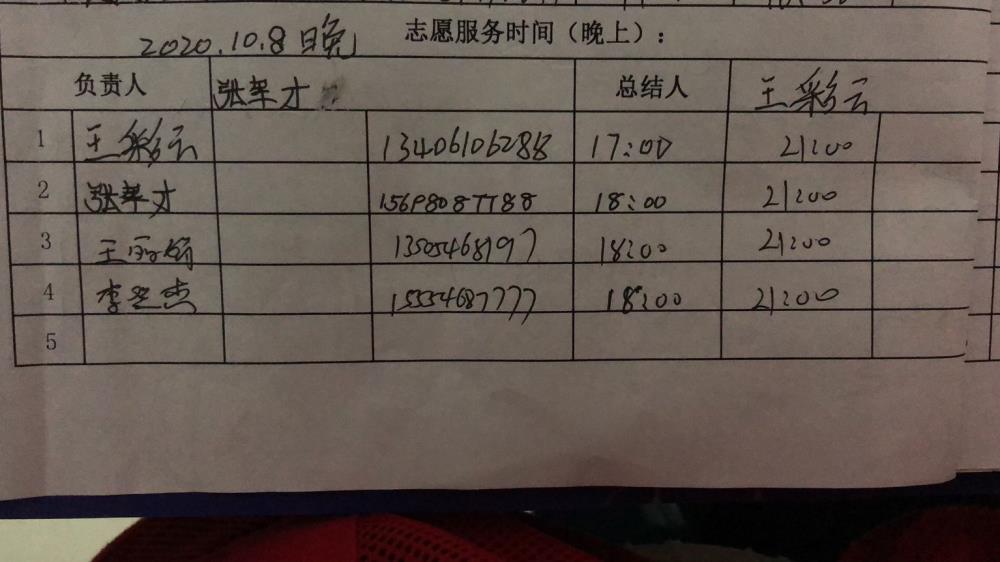 2020.10.8晚 志愿服务时间（晚上）：
负责人 张军才 总结人 王彩云
1 王彩云 13406106288 17:00 21:00
2 张军才 15698087788 18:00 21:00
3 王丽娟 13505468197 18:00 21:00
4 李 杰 15554687777 18:00 21:00
5